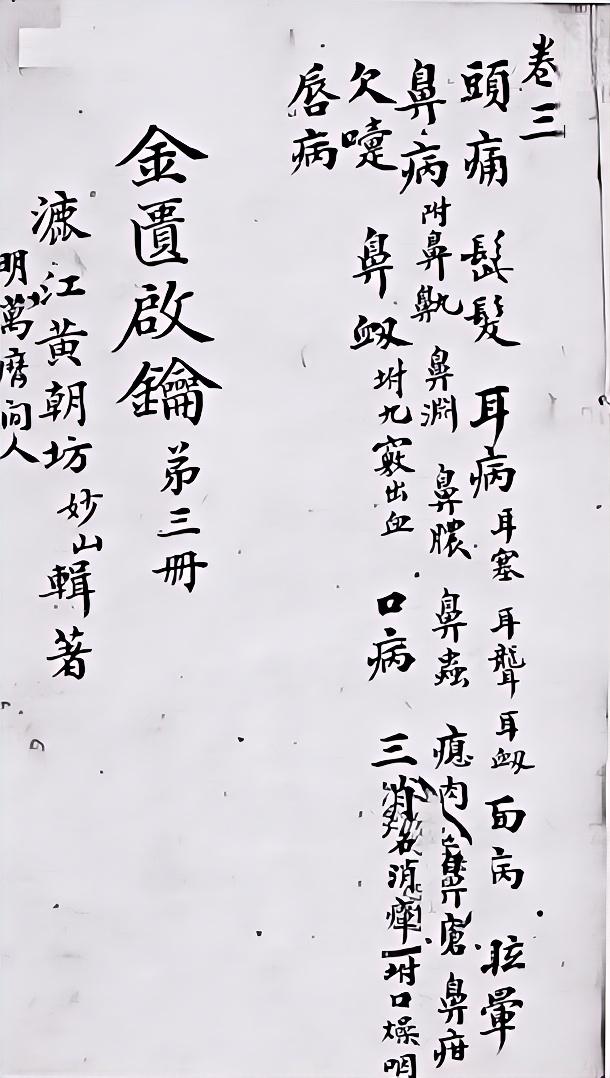 卷三
頭痛 髭髮 耳病 耳塞 耳聾 耳衄 面病 眩暈
鼻病 附鼻鼽 鼻淵 鼻膿 鼻蟲 瘜肉 鼻瘡 鼻疳
欠嚏 鼻衄 坿九竅出血 口病 三消 名消癉 坿口燥咽
唇病
金匱啟鑰 弟三冊
漉江黄朝坊 妙山 輯著
明萬曆间人